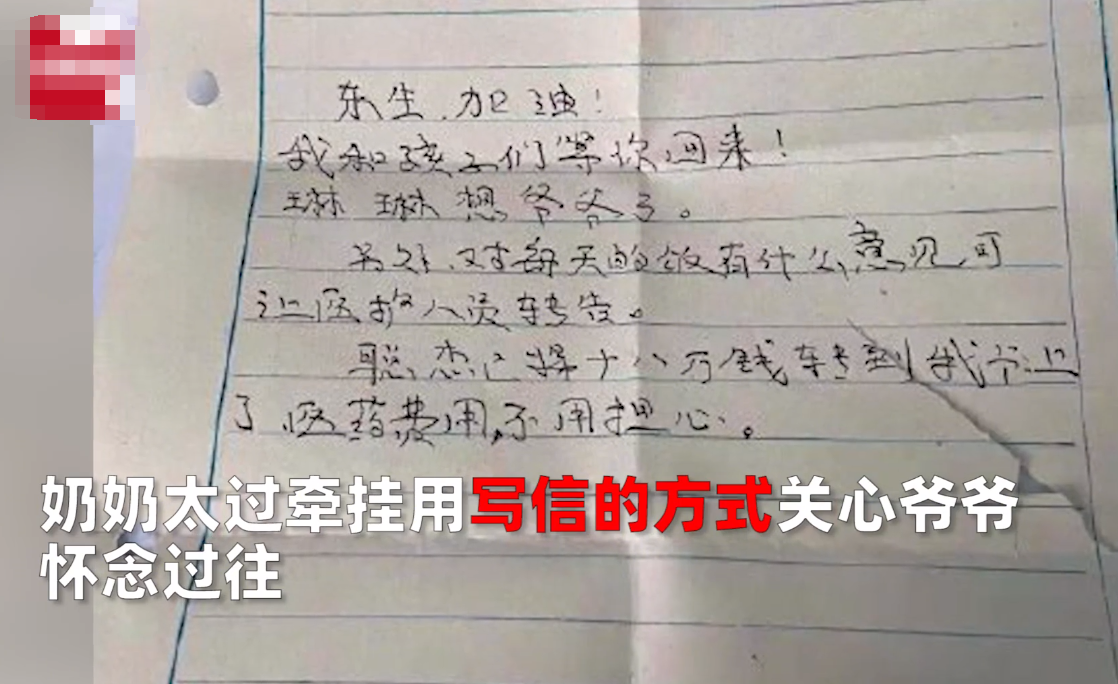 东生,加油!
我和孩子们等你回来!
琳琳想爷爷了。
另外,对每天的饭有什么意见,可
让医护人员转告。
聪杰已将十八万钱转到我那里
了,医药费用,不用担心。
奶奶太过牵挂用写信的方式关心爷爷
怀念过往